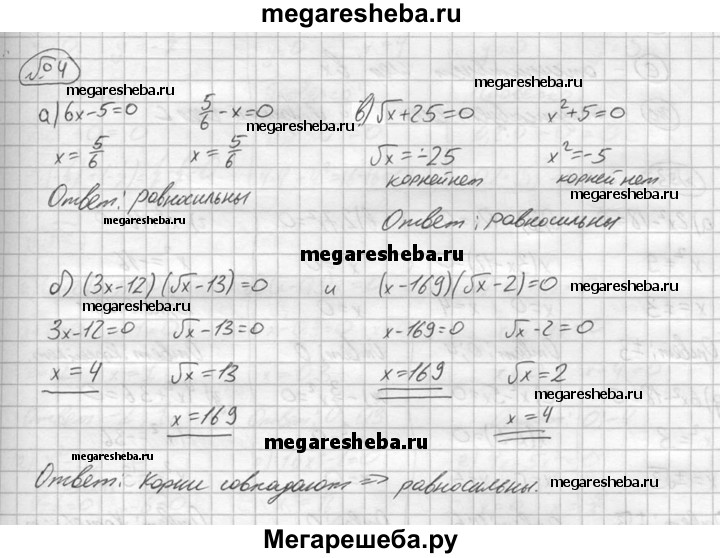 megaresheba.ru
№4
megaresheba.ru
а) 6x-5=0 5/6-x=0 в) √x+25=0 x²+5=0
megaresheba.ru megaresheba.ru
x=5/6 x=5/6 √x=-25 x²=-5
корней нет корней нет
Ответ: равносильны megaresheba.ru
megaresheba.ru
Ответ: равносильны
megaresheba.ru
б) (3x-12)(√x-13)=0 и (x-169)(√x-2)=0
megaresheba.ru megaresheba.ru
3x-12=0 √x-13=0 x-169=0 √x-2=0
x=4 √x=13 x=169 √x=2
megaresheba.ru
x=169 x=4
megaresheba.ru
megaresheba.ru
Ответ: корни совпадают => равносильны.
megaresheba.ru
Мегарешеба.ру